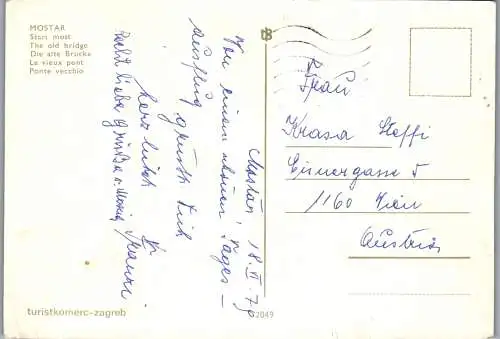 MOSTAR
Stari most
The old bridge
Die alte Brücke
Le vieux pont
Ponte vecchio
Mostar, 18. VI. 79
Von einem schönen Tages-
ausflug grüßt Dich
herzlich
Recht liebe Grüße
Frau
Krasa Steffi
5
1160 Wien
Austria
turistkomerc-zagreb
2049